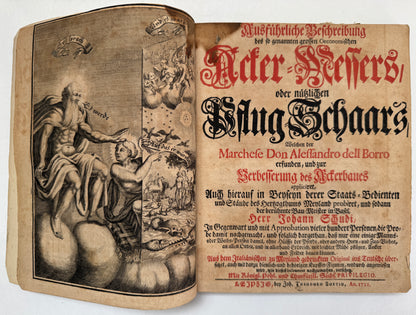 Ausführliche Beschreibung
des so genannten grossen Oeconomischen
Acker-Messers/
oder nützlichen
Pflug Schaars
Welchen der
Marchese Don Alessandro dell Borro
erfunden, und zur
Verbesserung des Ackerbaues
appliciret,
Auch hierauf in Beyseyn derer Staats-Bedienten
und Stände des Hertzogthums Meyland probiret, und sodann
der berühmte Bau-Meister in Basel,
Herr Johann Schudi,
In Gegenwart und mit Approbation vieler hundert Personen die Probe
damit nachgemacht, und folglich dargethan, daß nur eine einige Manns-
oder Weibs-Person damit, ohne Hülffe der Pferde, oder andern Horn- und Zug-Viehes,
an allen Orten, und in allerhand Erdreich, mit leichter Mühe pflügen, Aecker
und Felder bauen können.
Aus dem Italiänischen zu Meyland gedruckten Original ins Teutsche übersetzet,
auch mit darzu dienlich und behörigen Kupffer-Figuren, wodurch angewiesen
wird, wie dieses Instrument nachzumachen, versehen.
Mit Königl. Pohl. und Churfürstl. Sächs. PRIVILEGIO.
LEIPZIG, bey Joh. Theodori Boetio, An. 1721.